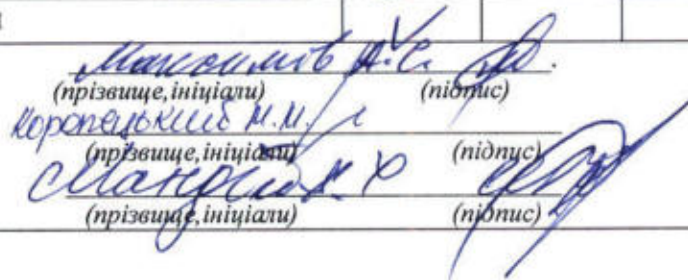 Максимів А.С.
(прізвище,ініціали) (підпис)
Коропецький М.М.
(прізвище,ініціали) (підпис)
(прізвище,ініціали) (підпис)